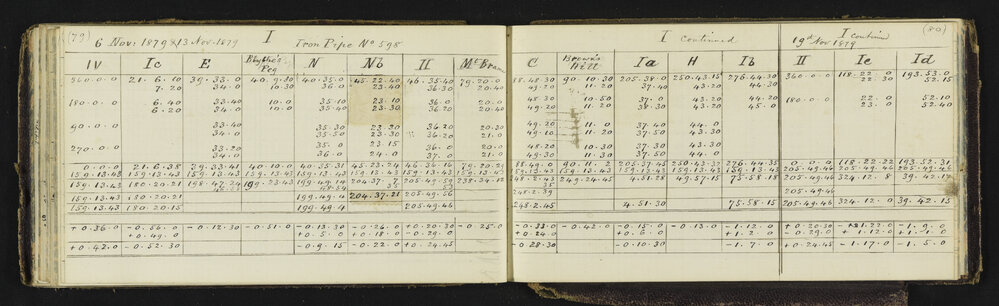 (79)
6 Nov: 1879 & 13 Nov. 1879 I Iron Pipe No 598
IV Ic E Blythe's Peg N Nb II McBean
360.0.0 21.6.10 39.33.0 40.9.30 40.35.0 45.22.40 46.35.40 79.20.0
7.20 34.0 10.30 36.0 23.40 36.30 20.40
180.0.0 6.40 33.40 10.0 35.10 23.10 36.0 20.30
6.20 34.0 10.30 36.0 23.30 36.20 20.40
90.0.0 33.40 35.30 23.20 36.20 20.30
34.0 35.50 23.30 36.20 21.0
270.0.0 33.20 35.0 23.15 36.0 20.30
34.0 36.0 24.0 37.0 21.0
0.0.0 21.6.38 39.33.41 40.10.0 40.35.31 45.23.24
159.13.43 159.13.43 159.13.43 159.13.43 159.13.43 159.13.43 159.13.43 159.13.43
159.13.43 180.20.21 199.23.43 199.49.14
159.13.43 180.20.21 199.49.4 204.37.21 205.49.56
159.13.43 180.20.15 199.49.4 205.49.46
+0.36.0 -0.56.0 -0.12.30 -0.51.0 -0.13.30 -0.26.0 +0.20.30 -0.25.0
+0.42.0 -0.52.30 -0.9.15 -0.22.0 +0.24.45
(80)
I continued
I continued
19th Nov 1879
C Brown's Hill Ia H Ib II Ic Id
88.48.30 90.10.30 205.38.0 250.43.15 276.44.30 360.0.0 118.22.0 193.53.0
49.20 11.20 37.40 43.20 44.30 22.30 52.15
48.30 10.50 37.0 43.20 44.20 180.0.0 22.0 52.10
49.20 11.20 38.30 43.30 45.0 23.0 52.40
49.20 11.0 37.40 44.0
49.10 11.20 37.50 43.30
48.20 10.30 37.30 43.0
49.30 11.20 37.50 44.0
88.49.0 90.11.2 205.37.45 250.43.32 276.44.35 0.0.0 118.22.22 193.52.31
159.13.43 159.13.43 159.13.43 159.13.43 159.13.43 205.49.46 205.49.46 205.49.46
249.24.45 4.51.28 49.57.15 75.58.18 205.49.46 324.12.8 39.42.17
248.2.39 205.49.46
248.2.45 4.51.30 75.58.15 205.49.46 324.12.0 39.42.15
-0.33.0 -0.42.0 -0.15.0 -0.13.0 -1.12.0 +0.20.30 -1.9.0
+0.24.0 +0.6.0 +1.2.0 +0.29.0 +1.12.0
-0.28.30 -0.10.30 -1.7.0 +0.24.45 -1.17.0 -1.5.0